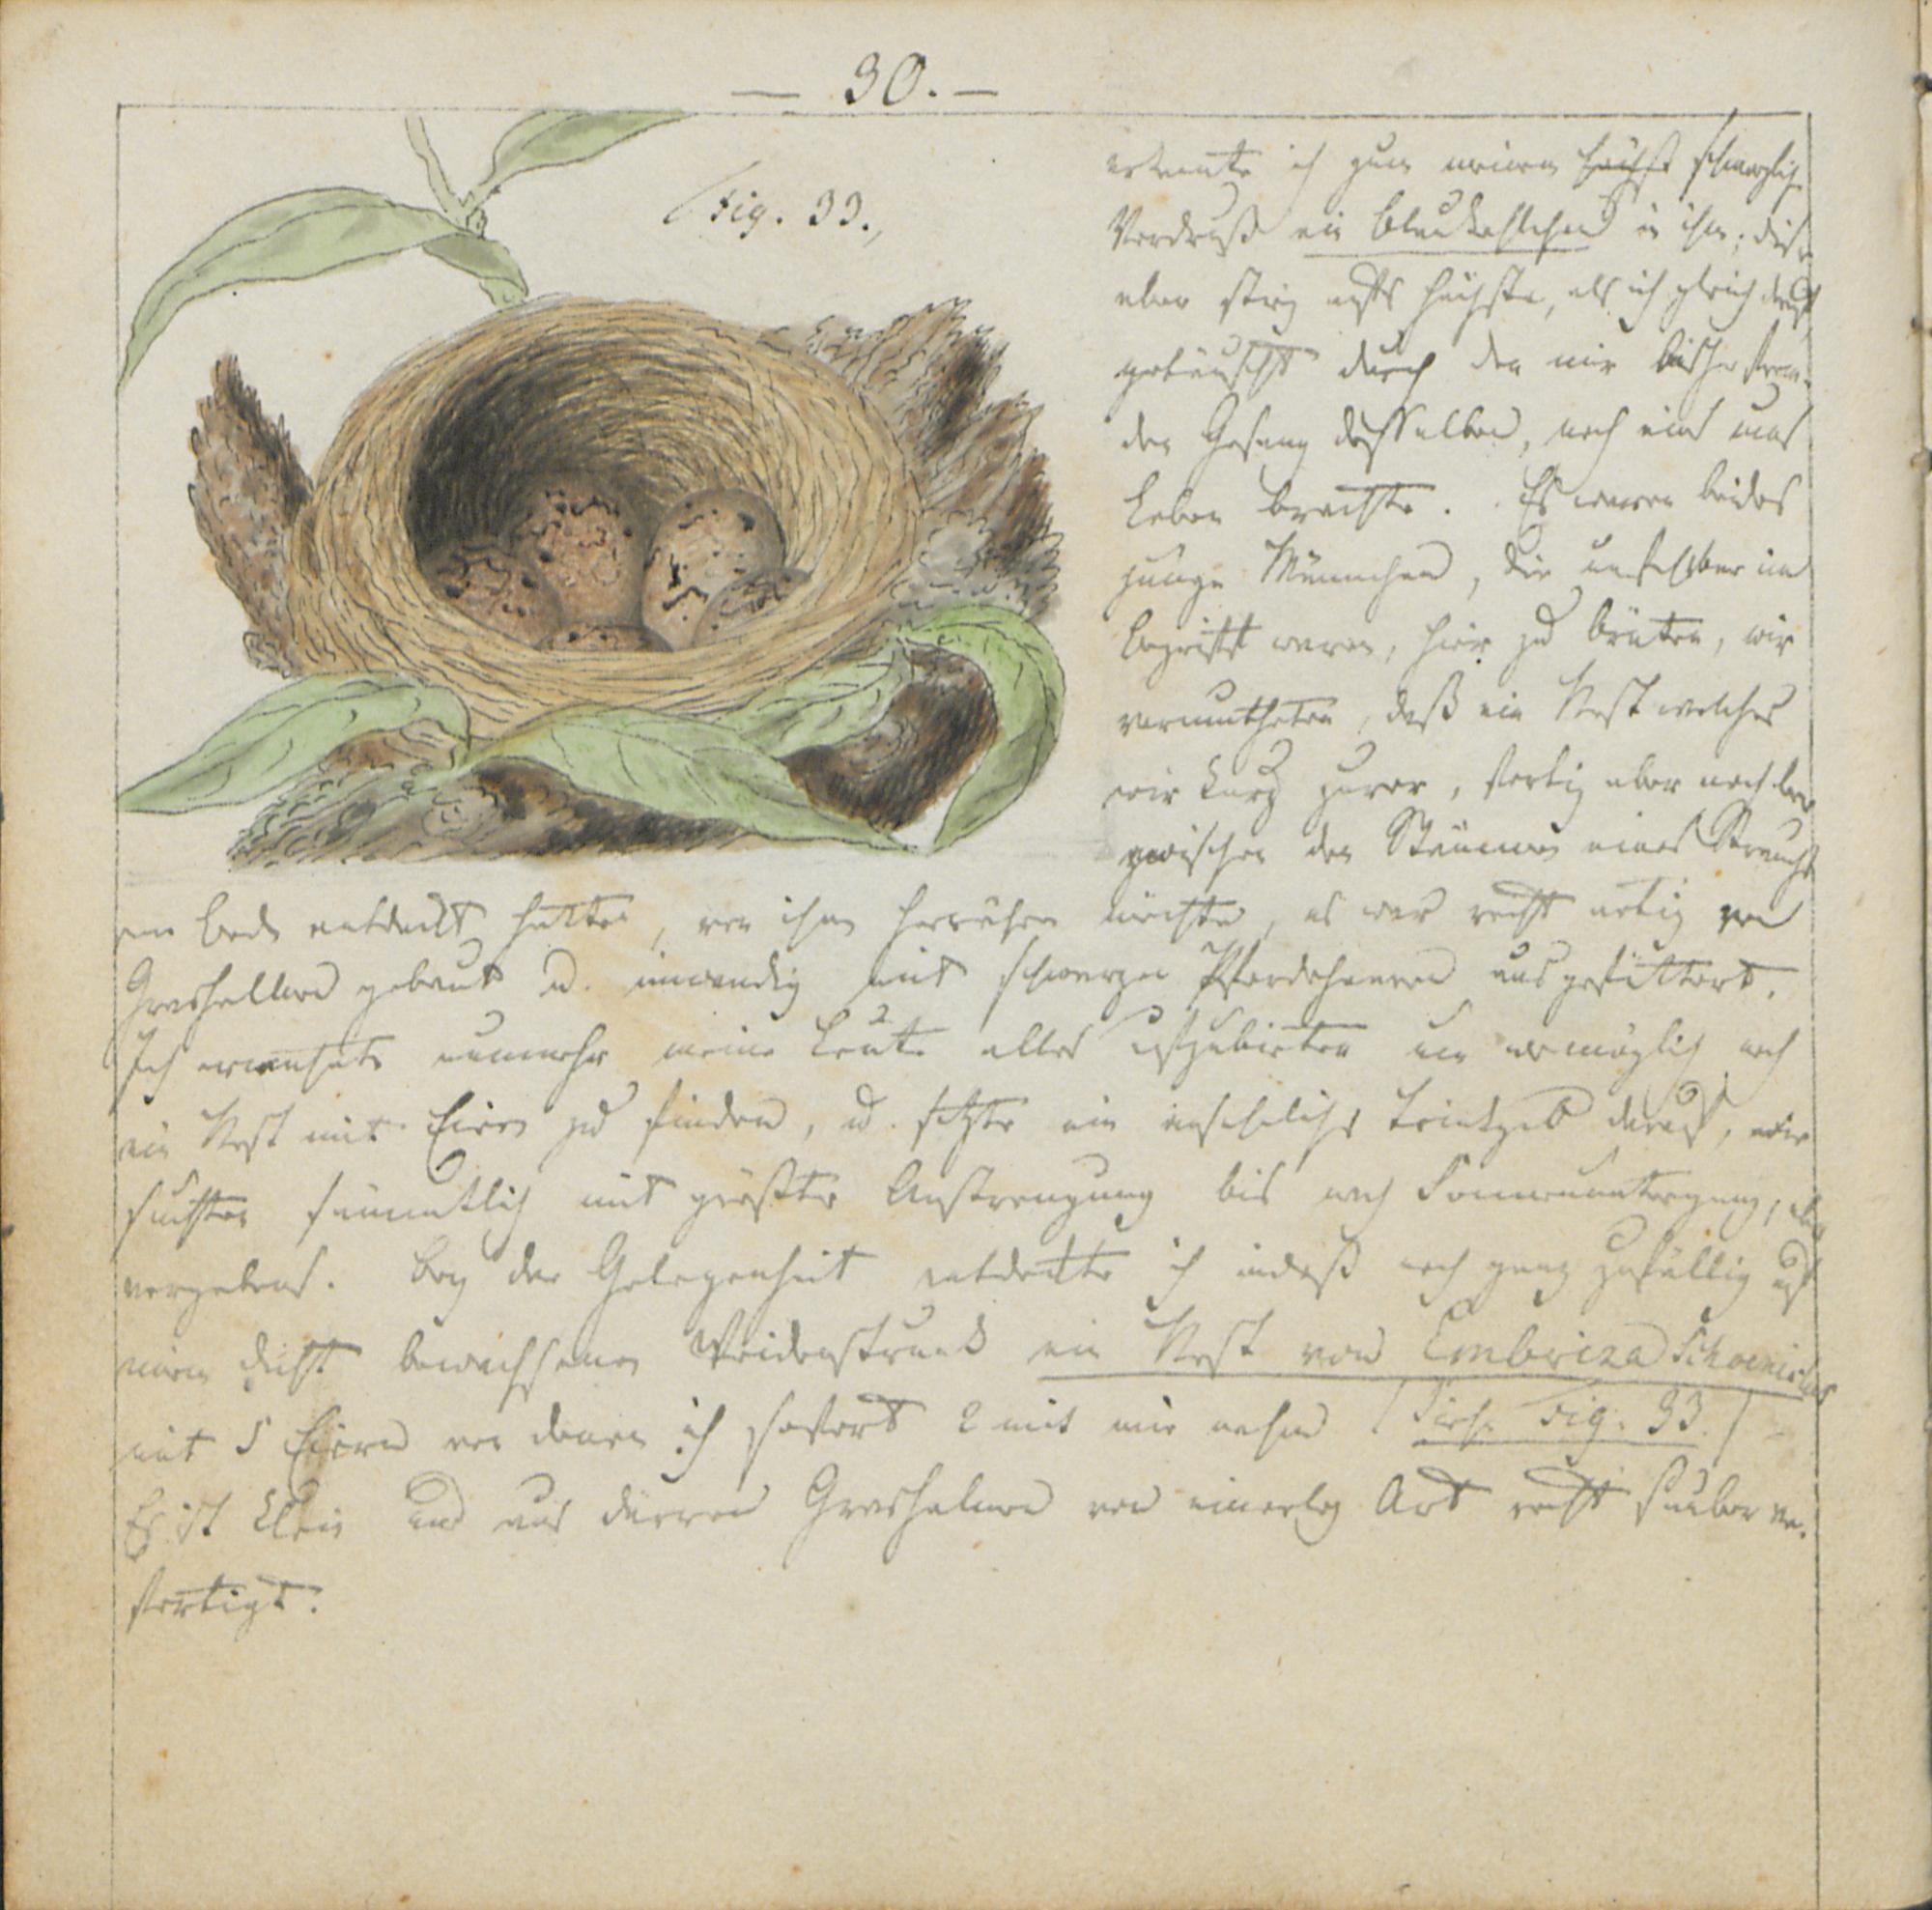 — 30. —
Fig. 33.,
erkannte ich zum meinem höchst schmerzlich
Verdruß ein Blaukehlchen in ihm; dieser
aber stieg aufs höchste, als ich gleich darauf,
getäuscht durch den mir bisher frem-
den Gesang desselben, noch eins ums
Leben brachte. Es waren beides
junge Männchen, die unfehlbar im
begriff waren, hier zu brüten, wir
vermutheten, daß ein Nest welches
wir kurz zuvor, fertig aber noch leer
zwischen den Stämmen eines Strauchs
am Boden entdeckt hatten, von ihm herrühren möchte, es war recht artig von
Grashalmen gebaut u. inwendig mit schwarzen Pferdehaaren ausgefüttert.
Ich ermahnte nunmehr meine 2 Leute alles aufzubieten um womöglich noch
ein Nest mit Eiern zu finden, u. setzte ein ansehnliches Trinkgeld darauf, wir
suchten sämmtlich mit größter Anstrengung bis nach Sonnenuntergang, aber
vergebens. Bey der Gelegenheit entdeckte ich indeß noch ganz zufällig auf
einem dicht bewachsenen Weidenstrunk ein Nest von Embriza Schoeniclus
mit 5 Eiern von denen ich sofort 2 mit mir nahm (Siehe Fig. 33.) -
Es ist klein und aus dürren Grashalmen von einerley Art recht sauber ver-
fertigt.